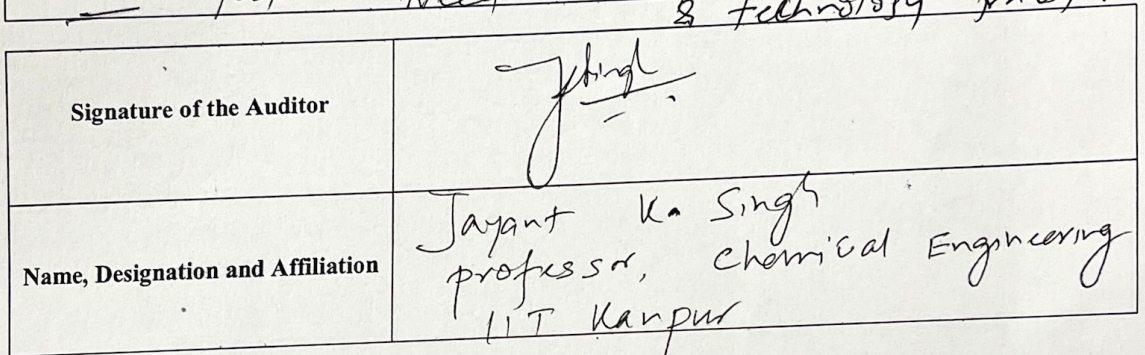 & technology
Signature of the Auditor
JKSingh
Name, Designation and Affiliation
Jayant K. Singh
professor, Chemical Engineering
IIT Kanpur